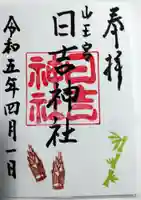 奉拝
山王宮
日吉神社
日吉神社
令和五年四月一日